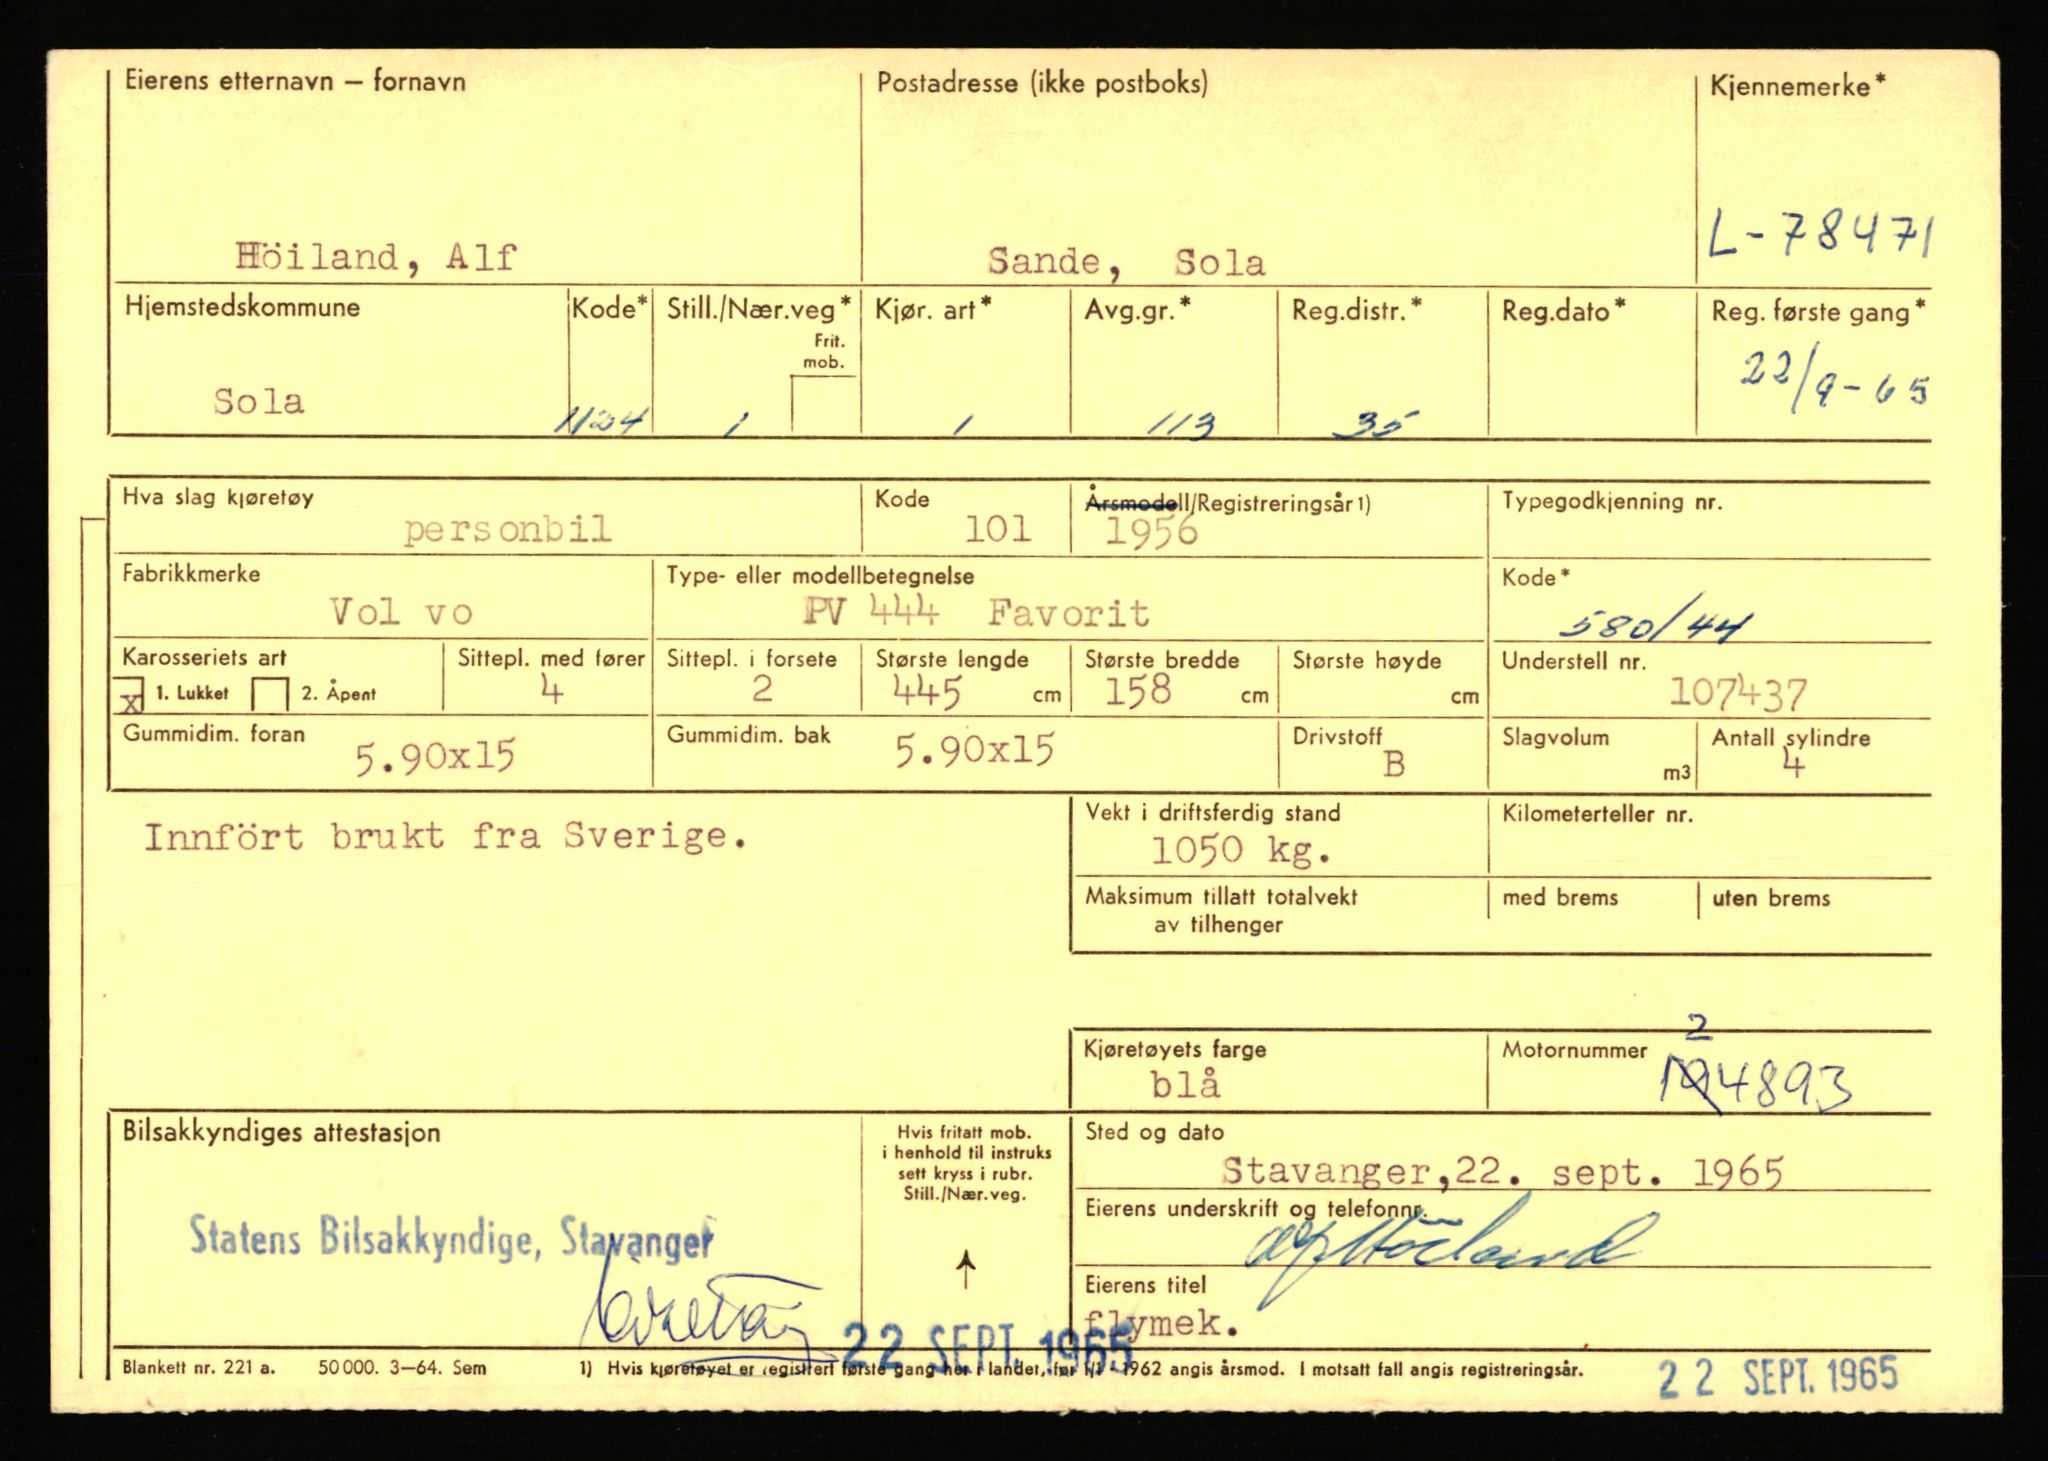 Eierens etternavn – fornavn Postadresse (ikke postboks) Kjennemerke*
Höiland, Alf Sande, Sola L-78471
Hjemstedskommune Kode* Still./Nær.veg* Kjør. art* Avg.gr.* Reg.distr.* Reg.dato* Reg. første gang*
Frit.
mob.
Sola 1124 1 1 113 35 22/9-65
Hva slag kjøretøy Kode Årsmodell/Registreringsår1) Typegodkjenning nr.
personbil 101 1956
Fabrikkmerke Type- eller modellbetegnelse Kode*
Vol vo PV 444 Favorit 580/44
Karosseriets art Sittepl. med fører Sittepl. i forsete Største lengde Største bredde Største høyde Understell nr.
x 1. Lukket 2. Åpent 4 2 445 cm 158 cm cm 107437
Gummidim. foran Gummidim. bak Drivstoff Slagvolum Antall sylindre
5.90x15 5.90x15 B m3 4
Vekt i driftsferdig stand Kilometerteller nr.
Innfört brukt fra Sverige. 1050 kg.
Maksimum tillatt totalvekt med brems uten brems
av tilhenger
2
Kjøretøyets farge Motornummer
blå 194893
Bilsakkyndiges attestasjon Hvis fritatt mob. Sted og dato
i henhold til instruks
sett kryss i rubr.
Still./Nær.veg.
Stavanger,22. sept. 1965
Eierens underskrift og telefonnr.
Statens Bilsakkyndige, Stavanger
Alf Höiland
Eierens titel
flymek.
22 SEPT. 1965
Blankett nr. 221 a. 50 000. 3–64. Sem 1) Hvis kjøretøyet er registrert første gang her i landet, før 1/1 - 1962 angis årsmod. I motsatt fall angis registreringsår.
22 SEPT. 1965